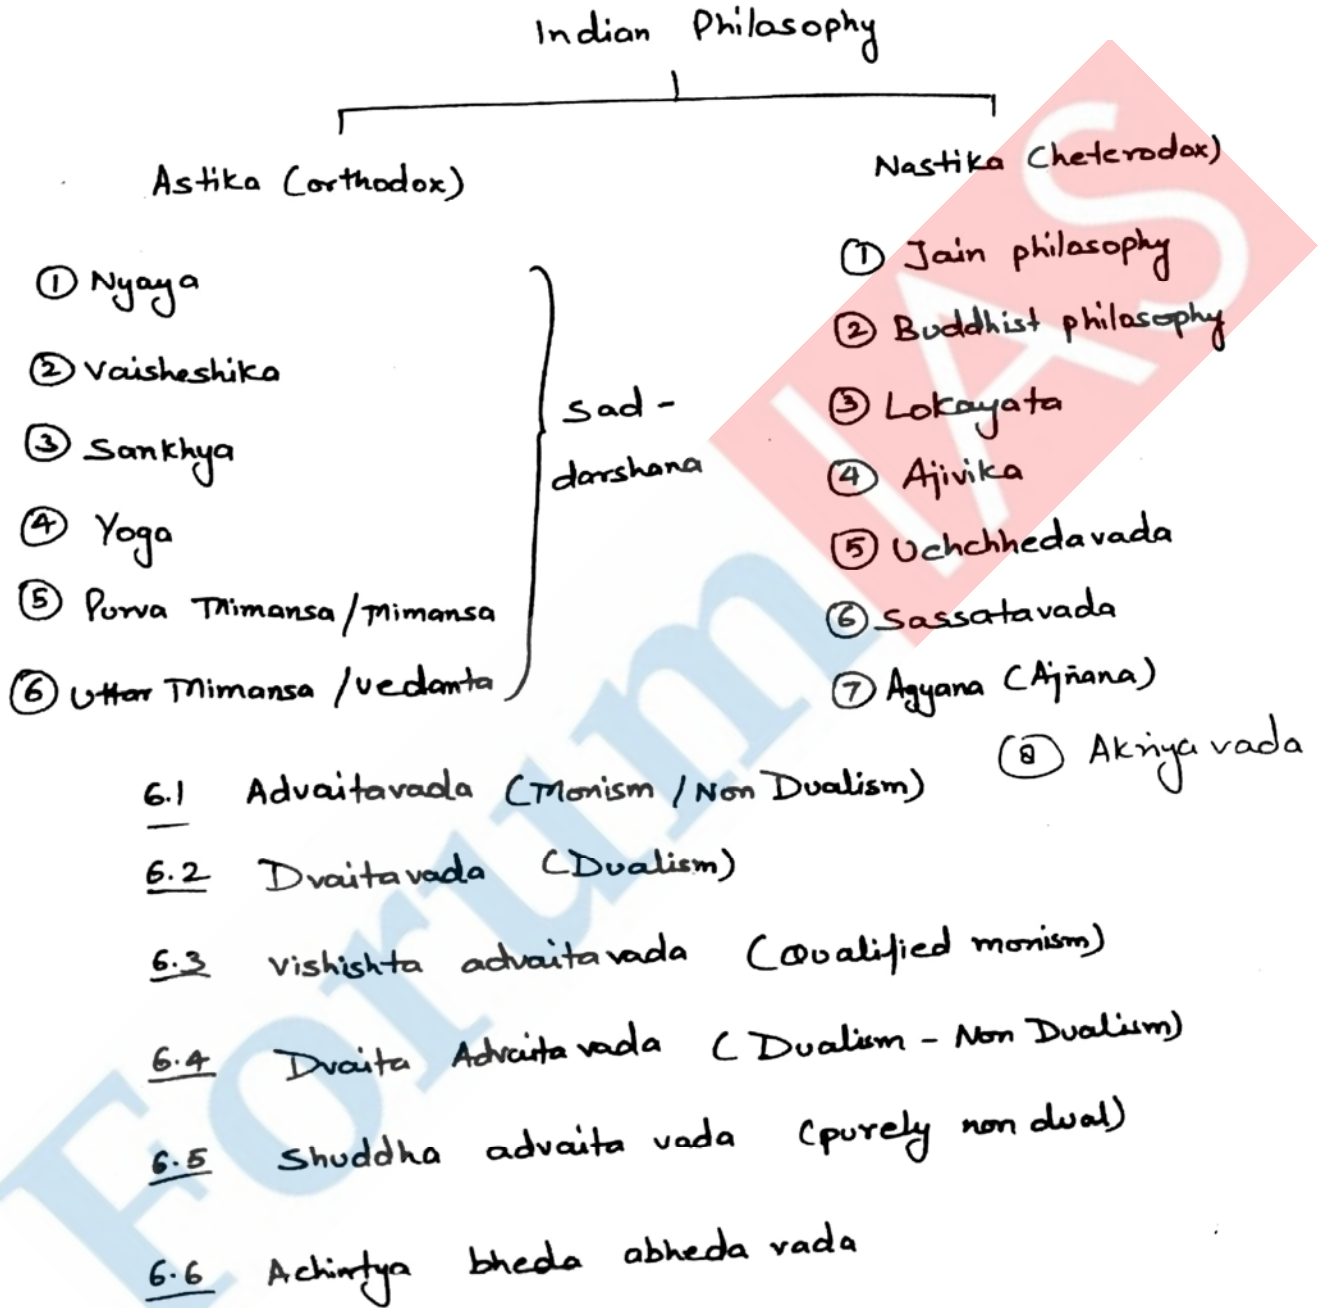 Indian Philasophy
Astika (orthodox)
Nastika (heterodox)
① Nyaya
② Vaisheshika
③ Sankhya
④ Yoga
⑤ Purva Mimansa/Mimansa
⑥ Uttar Mimansa /Vedanta
Sad-
darshana
① Jain philasophy
② Buddhist philasophy
③ Lokayata
④ Ajivika
⑤ Uchchhedavada
⑥ Sassatavada
⑦ Agyana (Ajñana)
⑧ Akriya vada
6.1 Advaitavada (Monism / Non Dualism)
6.2 Dvaitavada (Dualism)
6.3 Vishishta advaitavada (Qualified monism)
6.4 Dvaita Advaita vada (Dualism - Non Dualism)
6.5 Shuddha advaita vada (purely non dual)
6.6 Achintya bheda abheda vada
Forum IAS